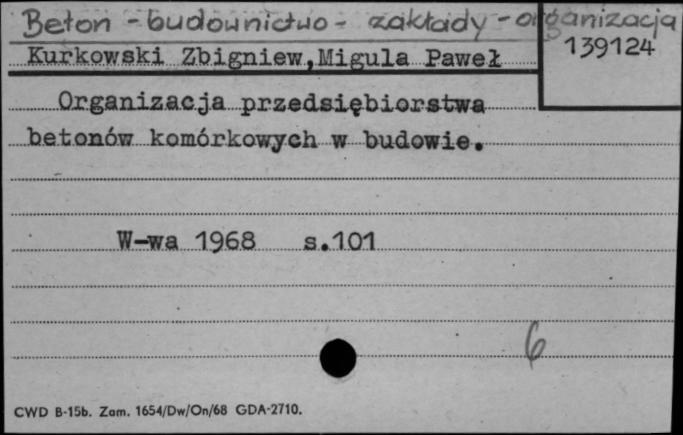 Beton - budownictwo - zakłady - organizacja
139124
Kurkowski Zbigniew,Migula Paweł
Organizacja przedsiębiorstwa
betonów komórkowych w budowie.
W-wa 1968 s.101
6
CWD B-15b. Zam. 1654/Dw/On/68 GDA-2710.